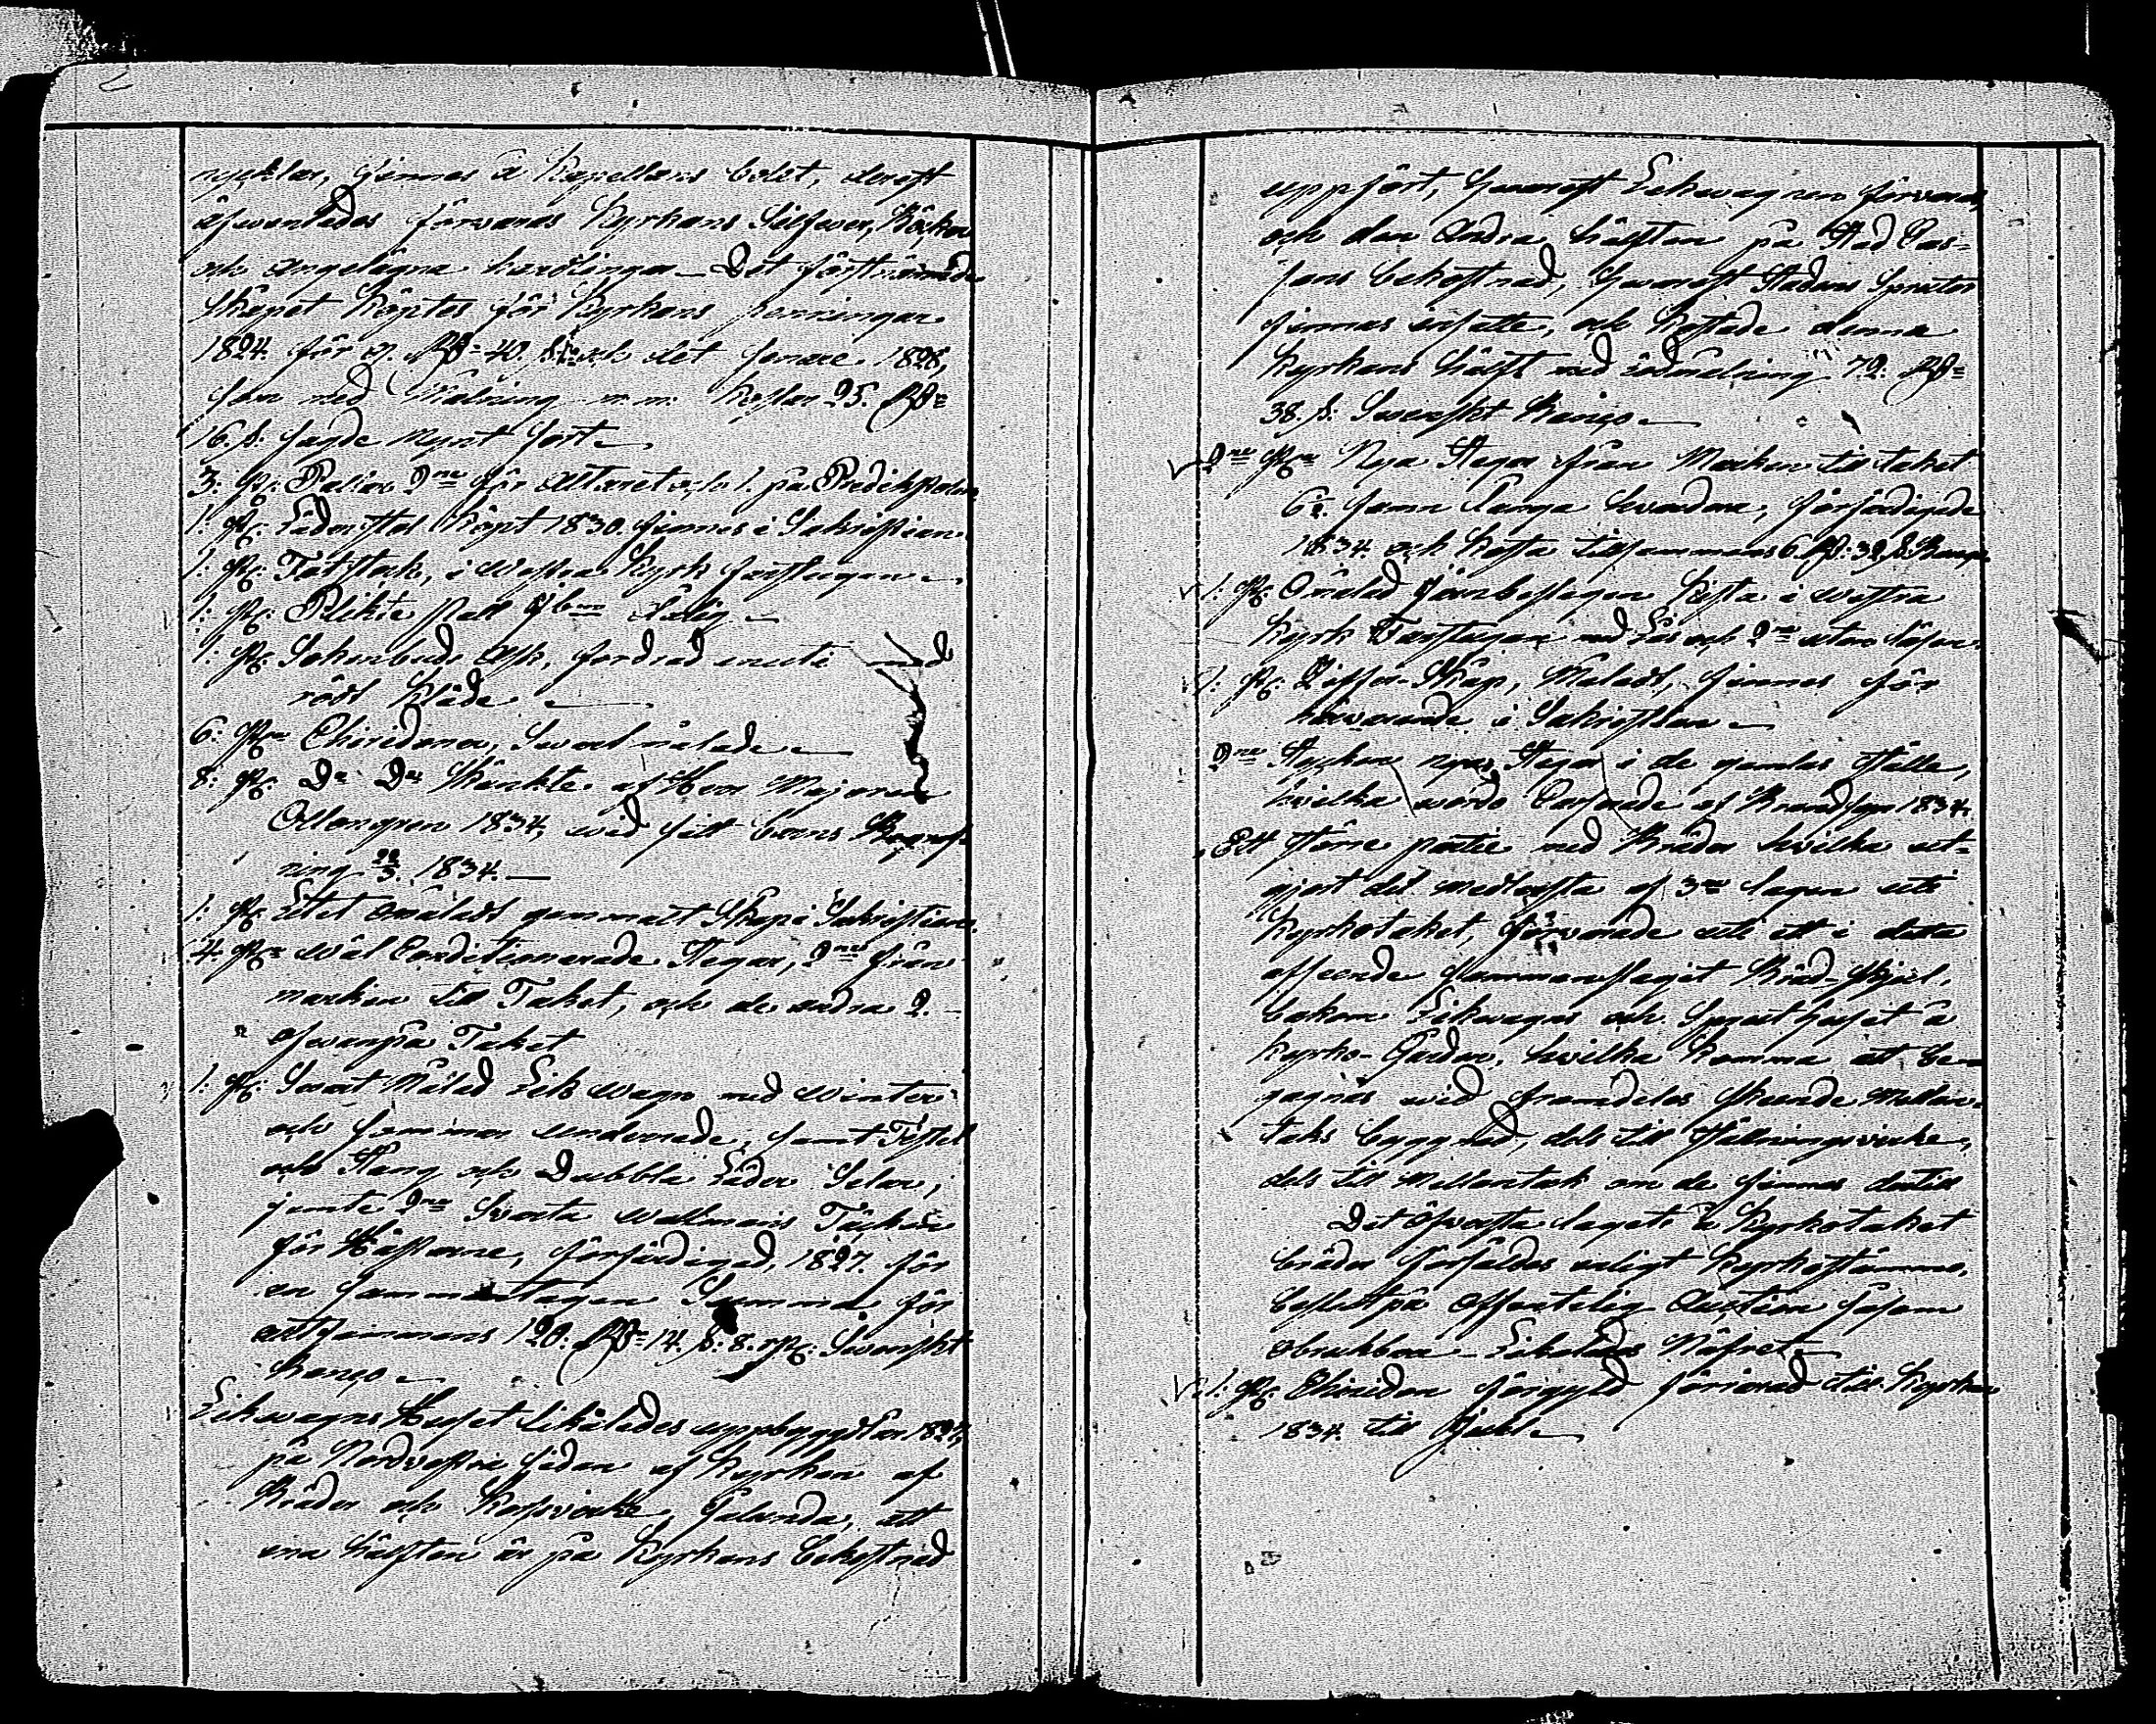 nycklar, finnas å Kapellans bolet, derest
äfwenledes förwaras Kyrkans Silfwer, Böcker
och angelägna handlingar – Det förstnämnde
Skåpet köptes för Kyrkans penningar
1824 för 40. och det senare 1828,
som med Målning m.m. kostar 25. Rd=
16. s: sagde Mynt sort –
3: St: 2ne för Altaret och 1. på Predikstolen
1: St: Läderstol köpt 1830. finnes i Sakristian.
1: St: i westra Kyrk farstugan –
1: St: Plikte Pall
1: St: Sockenbuds Ask, fordrad inuti med
rödt Kläde –
6: St: Chiridoner, Swart målade –
8: St: Do Do Skänkte af Herr Majoren
1834, wid sitt barns
ning 1834. –
1: St: Litet omåladt gammalt Skåp i Sakristian.
4. St: wäl Conditionerade Stegar, 2ne från
marken till Taket, och de andra 2.
ofwanpå Taket
1: St: Swart Målad Lik wagn med winter
och sommar underrede, samt Tistel
och Stång och Dubbla Läder Selar,
jemte 2ne Swarta wallmans Täcken
för Hästarne, förfärdigad 1827. för
en sammantagen Summa för
altsammans 120. Rd= 14. s: 8. rst: Swenskt
Banco –
Likwagns Huset likåledes uppbyggdt år 1827,
på Nordvestra sidan af Kyrkan af
Bräder och Korswirke, Salunda, att
ena hälften är på Kyrkans bekostnad
uppfört, hwarest Likwagnen förvaras,
och den Andra hälften på Stad Cas-
sans bekostnad, hwarest Stadens Sprutor
finnas insatte, och kostade denna
Kyrkans hälft med rödmålning 72. Rd=
38. s: Swenskt Banco –
2ne St: Nya Stegar från Marken till taket
6 1/2. famn Långa hwardera, förfärdigade
1834. och kosta tillsammans 6 Rd: 32 s. Banco
1: St: Omålad Järnbeslagen Kista i westra
Kyrk Farstugan med Lås och 2ne
1: St: Ziffer-Skåp, Måladt, finnes för
närwarande i Sakristian –
2ne Stycken nya Stegar i de gamlas ställe,
hvilka wordo Casserade af Brandsyn 1834.
Ett större partie med Bräder hwilka ut-
gjort det medlersta af 3ne lagen uti
Kyrkotaket, förvarade uti ett i detta
afseende sammanslaget Bräd-skjul,
bakom Likwagns och Sprut huset å
Kyrko-Gården, hwilka komma att be-
gagnas wid framdeles skeende mellan-
taks byggnad, dels till Ställningsvirke,
dels till Mellantak om de finnas dertill
Det öfwersta laget å Kyrkotaket
bräder försåldes enligt Kyrkostämmo,
beslut på offentelig Auction såsom
obrukbara – Likaledes Näfret –
1: St: Chiridon förgyld förärad till Kyrkan
1834. till Jul –